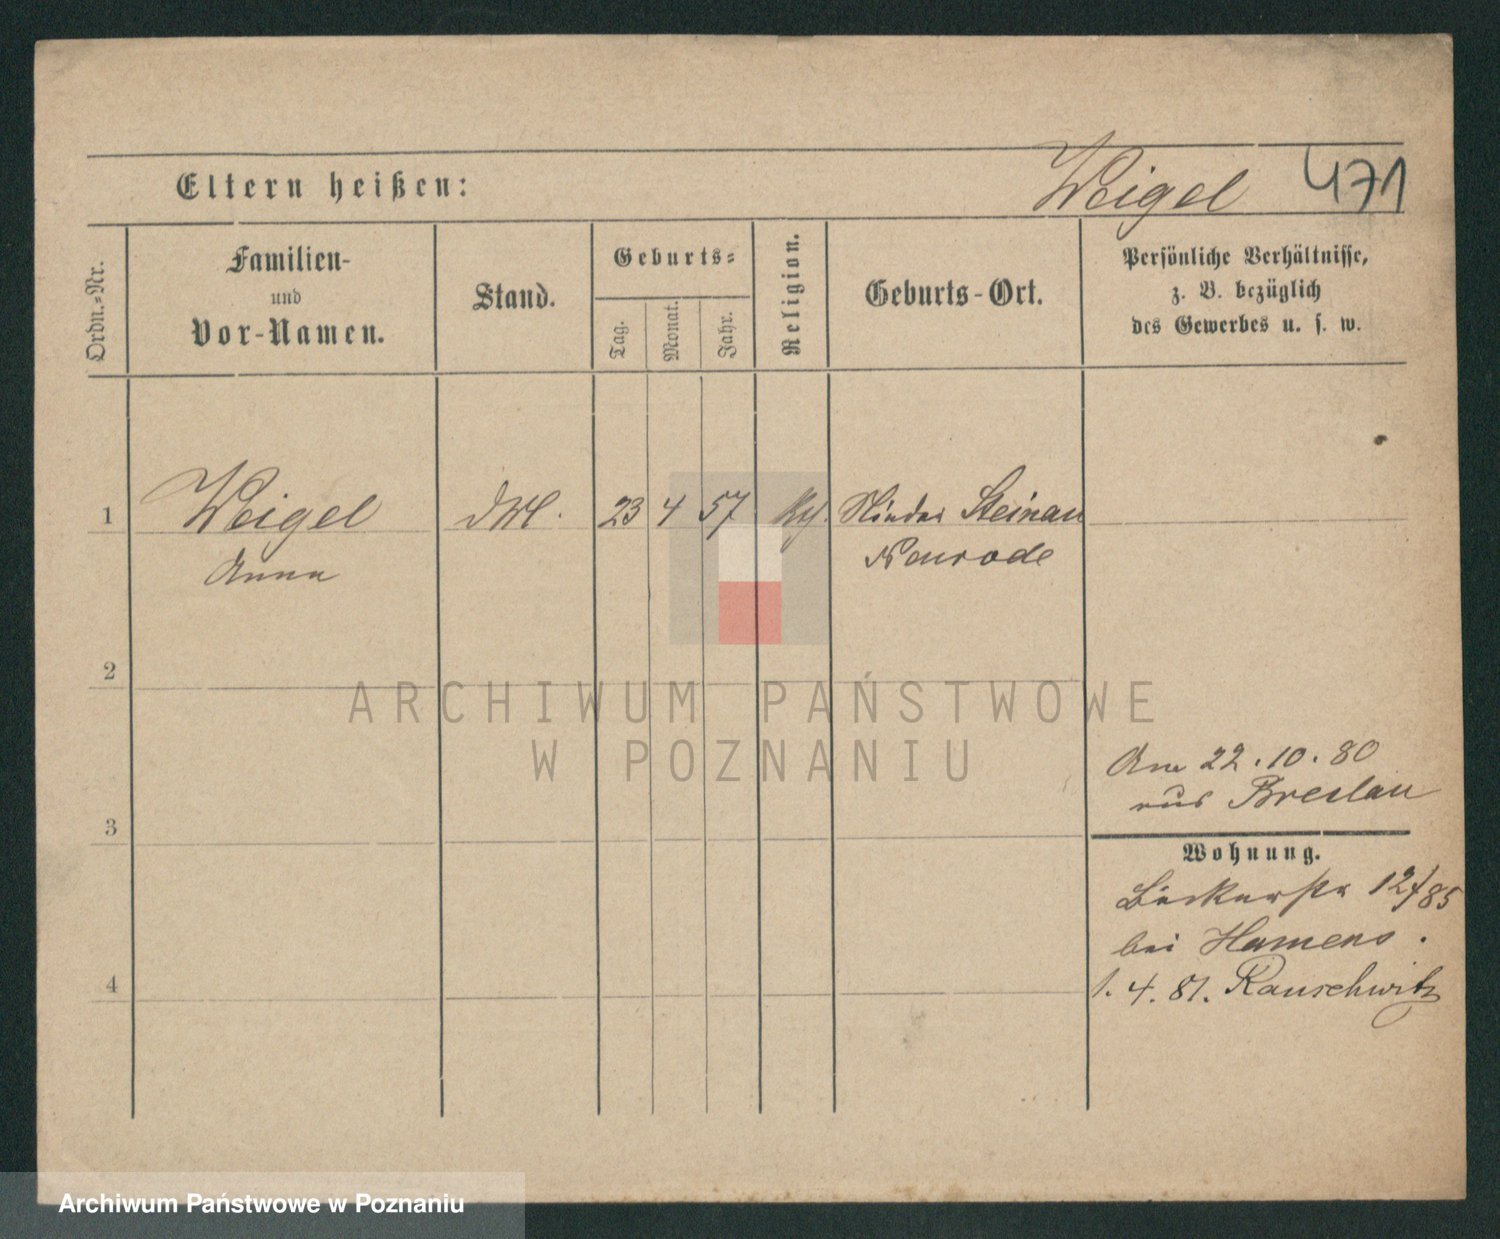 Weigel 471
Eltern heißen:
Ordn.-Nr.
Familien-
und
Vor-Namen.
Stand.
Geburts-
Tag.
Monat.
Jahr.
Religion.
Geburts-Ort.
Persönliche Verhältnisse,
z. B. bezüglich
des Gewerbes u. s. w.
1 Weigel 23 4 57 Steinau
Anna Neurode
2
ARCHIWUM PAŃSTWOWE
W POZNANIU
22.10.80
aus Breslau
3
Wohnung.
Bäckerstr 12/85
bei
4
1.4.81. Rauschwitz
Archiwum Państwowe w Poznaniu